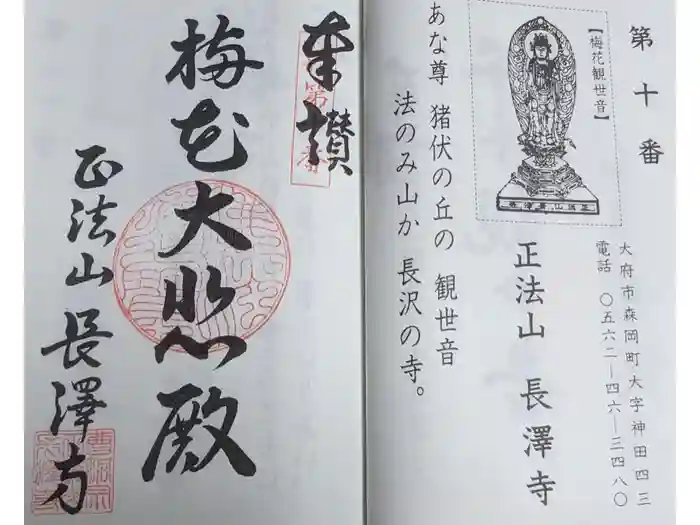 第十番
【梅花観世音】
正法山長澤寺
大府市森岡町大字神田四三
電話 〇五六二―四六―三四八〇
正法山 長澤寺
あな尊 猪伏の丘の 観世音
法のみ山か 長沢の寺。
奉讃
第 番
梅花大悲殿
正法山 長澤寺